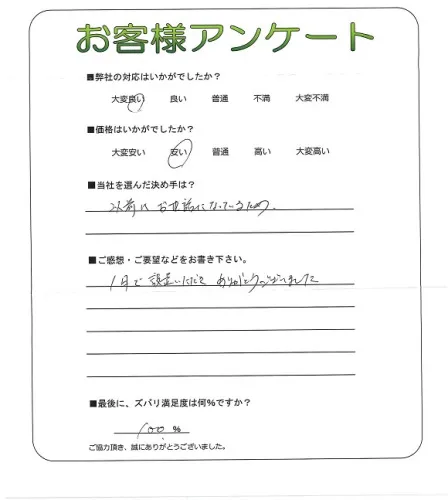 お客様アンケート
■弊社の対応はいかがでしたか？
大変良い 良い 普通 不満 大変不満
■価格はいかがでしたか？
大変安い 安い 普通 高い 大変高い
■当社を選んだ決め手は？
以前にお世話になっているため
■ご感想・ご要望などをお書き下さい。
いただき ありがとうございました
■最後に、ズバリ満足度は何%ですか？
100 %
ご協力頂き、誠にありがとうございました。